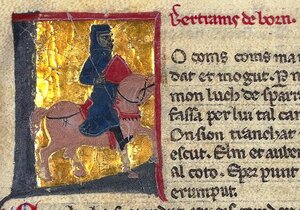 Bertrams de born.
O coms coms ma
dat et mogut. P n
mon luch de sparr
fassa per lui tal car
Onsion tranchat
escut. Elm et auber
al coto. Sper punt
erumput.